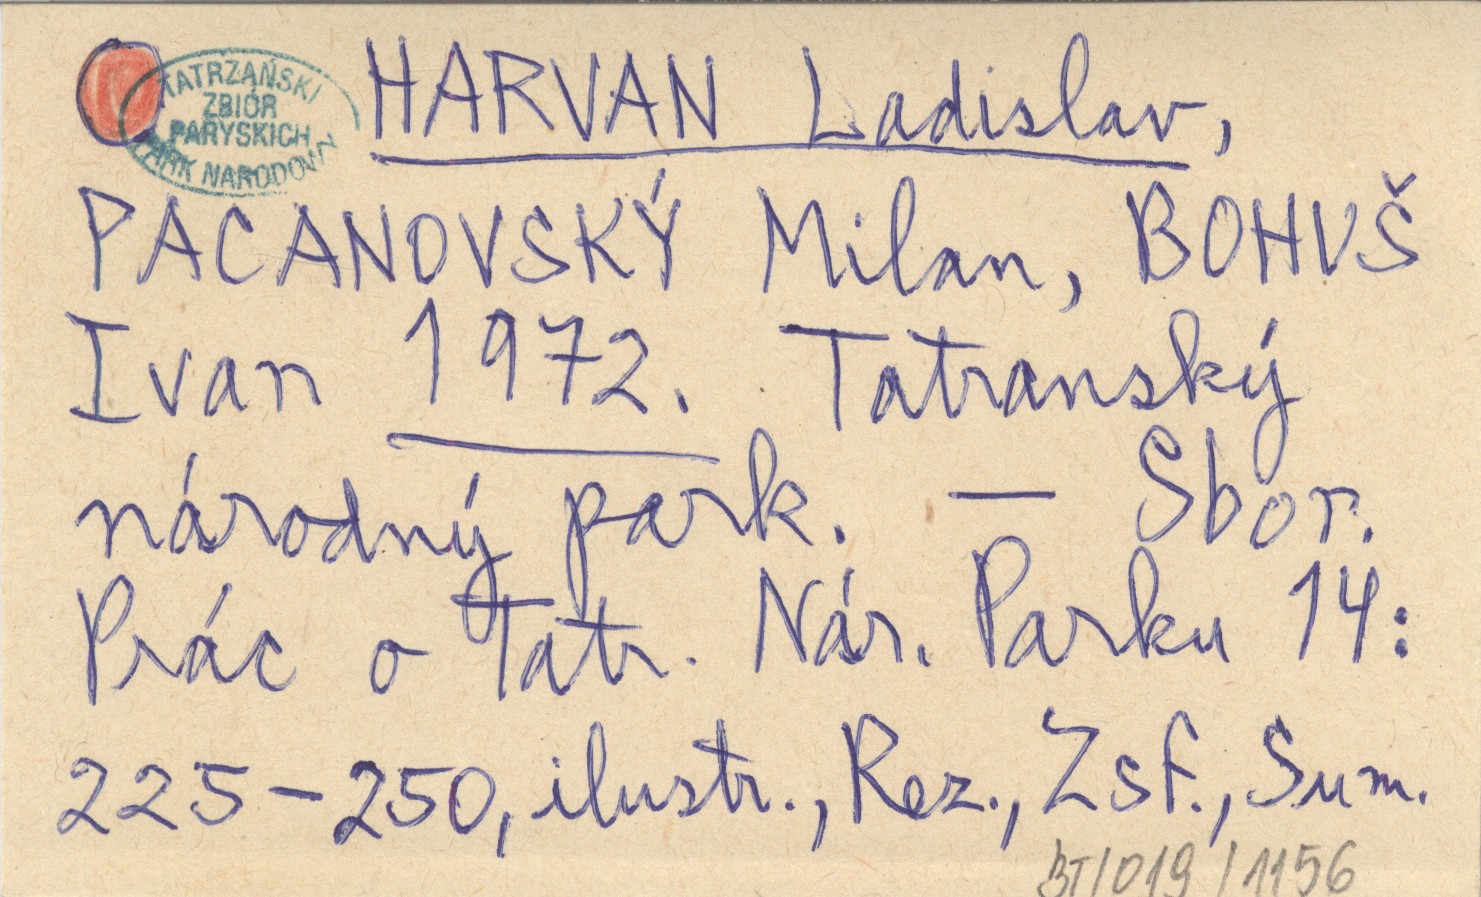 TATRZAŃSKI
ZBIÓR
PARYSKICH
PARK NARODOWY
HARVAN Ladislav,
PACANOVSKÝ Milan, BOHUŠ
Ivan 1972. Tatranský
národný park. — Sbor.
Prác o Tatr. Nár. Parku 14:
225-250, ilustr., Rez., Zsf., Sum.
BT/019/1156